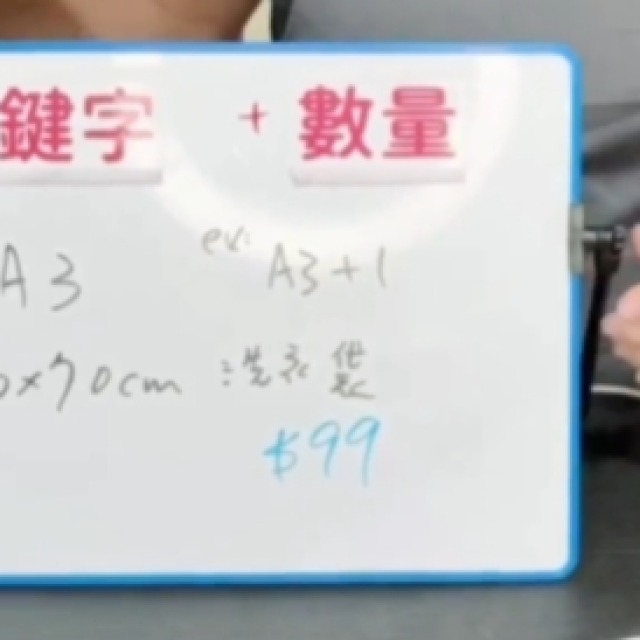 鍵字 + 數量
A3 ex: A3+1
0x70cm 洗衣袋
$99